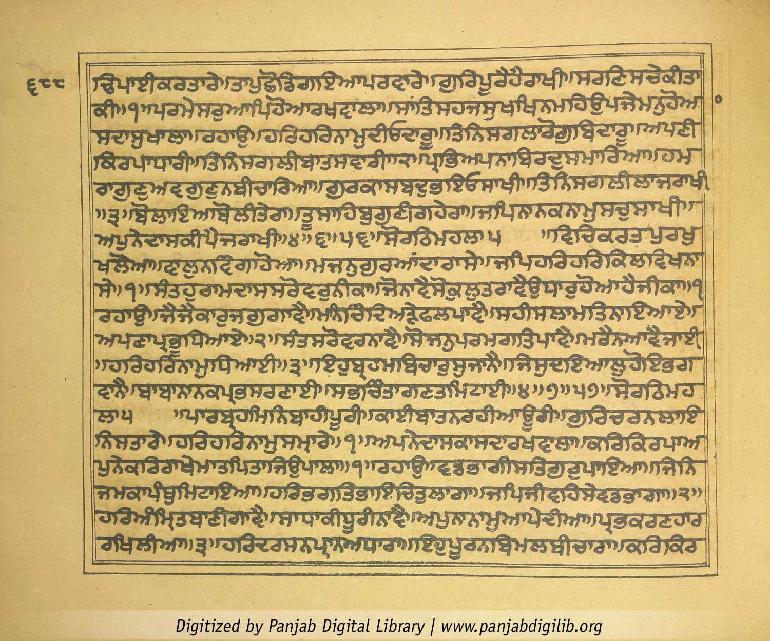 ੬੮੮
ਢਿਪਾਈਕਰਤਾਰੇ॥ਤਾਪੁਛੋਡਿਗਇਆਪਰਵਾਰੇ॥ਗੁਰਿਪੂਰੈਹੈਰਾਖੀ॥ਸਰਣਿਸਚੇਕੀਤਾ
ਕੀ॥੧॥ਪਰਮੇਸਰੁਆਪਿਹੋਆਰਖਵਾਲਾ॥ਸਾਂਤਿਸਹਜਸੁਖਖਿਨਮਹਿਉਪਜੇਮਨੁਹੋਆ
ਸਦਾਸੁਖਾਲਾ॥ਰਹਾਉ॥ਹਰਿਹਰਿਨਾਮੁਦੀਓਦਾਰੂ॥ਤਿਨਿਸਗਲਾਰੋਗੁਬਿਦਾਰੂ॥ਅਪਣੀ
ਕਿਰਪਾਧਾਰੀ॥ਤਿਨਿਸਗਲੀਬਾਤਸਵਾਰੀ॥੨॥ਪ੍ਰਭਿਅਪਨਾਬਿਰਦੁਸਮਾਰਿਆ॥ਹਮ
ਰਾਗੁਣੁਅਵਗੁਣੁਨਬੀਚਾਰਿਆ॥ਗੁਰਕਾਸਬਦੁਭਇਓਸਾਖੀ॥ਤਿਨਿਸਗਲੀਲਾਜਰਾਖੀ
॥੩॥ਬੋਲਾਇਆਬੋਲੀਤੇਰਾ॥ਤੂਸਾਹਿਬੁਗੁਣੀਗਹੇਰਾ॥ਜਪਿਨਾਨਕਨਾਮੁਸਚੁਸਾਖੀ॥
ਅਪੁਨੇਦਾਸਕੀਪੈਜਰਾਖੀ॥੪॥੬॥੫੬॥ਸੋਰਠਿਮਹਲਾ੫ ॥ਵਿਚਿਕਰਤਾਪੁਰਖੁ
ਖਲੋਆ॥ਵਾਲੁਨਵਿੰਗਾਹੋਆ॥ਮਜਨੁਗੁਰਆਂਦਾਰਾਸੇ॥ਜਪਿਹਰਿਹਰਿਕਿਲਵਿਖਨਾ
ਸੇ॥੧॥ਸੰਤਹੁਰਾਮਦਾਸਸਰੋਵਰੁਨੀਕਾ॥ਜੋਨਾਵੈਸੋਕੁਲੁਤਰਾਵੈਉਧਾਰੁਹੋਆਹੈਜੀਕਾ॥੧
ਰਹਾਉ॥ਜੈਜੈਕਾਰੁਜਗੁਗਾਵੈ॥ਮਨਚਿੰਦਿਅੜੇਫਲਪਾਵੈ॥ਸਹੀਸਲਾਮਤਿਨਾਇਆਏ॥
ਅਪਣਾਪ੍ਰਭੂਧਿਆਏ॥੨॥ਸੰਤਸਰੋਵਰਨਾਵੈ॥ਸੋਜਨੁਪਰਮਗਤਿਪਾਵੈ॥ਮਰੈਨਆਵੈਜਾਈ
॥ਹਰਿਹਰਿਨਾਮੁਧਿਆਈ॥੩॥ਇਹੁਬ੍ਰਹਮਬਿਚਾਰੁਸੁਜਾਨੈ॥ਜਿਸੁਦਇਆਲੁਹੋਇਭਗ
ਵਾਨੈ॥ਬਾਬਾਨਾਨਕਪ੍ਰਭਸਰਣਾਈ॥ਸਭਚਿੰਤਾਗਣਤਮਿਟਾਈ॥੪॥੭॥੫੭॥ਸੋਰਠਿਮਹ
ਲਾ੫ ॥ਪਾਰਬ੍ਰਹਮਿਨਿਬਾਹੀਪੂਰੀ॥ਕਾਈਬਾਤਨਰਹੀਆਊਰੀ॥ਗੁਰਿਚਰਨਲਾਇ
ਨਿਸਤਾਰੇ॥ਹਰਿਹਰਿਨਾਮੁਸਮ੍ਹਾਰੇ॥੧॥ਅਪਨੇਦਾਸਕਾਸਦਾਰਖਵਾਲਾ॥ਕਰਿਕਿਰਪਾਅ
ਪੁਨੇਕਰਿਰਾਖੇਮਾਤਪਿਤਾਜਿਉਪਾਲਾ॥੧॥ਰਹਾਉ॥ਵਡਭਾਗੀਸਤਿਗੁਰੁਪਾਇਆ॥ਜਿਨਿ
ਜਮਕਾਪੰਥੁਮਿਟਾਇਆ॥ਹਰਿਭਗਤਿਭਾਇਚਿਤੁਲਾਗਾ॥ਜਪਿਜੀਵਹਿਸੇਵਡਭਾਗਾ॥੨॥
ਹਰਿਅੰਮ੍ਰਿਤਬਾਣੀਗਾਵੈ॥ਸਾਧਾਕੀਧੂਰੀਨਾਵੈ॥ਅਪੁਨਾਨਾਮੁਆਪੇਦੀਆ॥ਪ੍ਰਭਕਰਣਹਾਰ
ਰਖਿਲੀਆ॥੩॥ਹਰਿਦਰਸਨਪ੍ਰਾਨਅਧਾਰਾ॥ਇਹੁਪੂਰਨਬਿਮਲਬੀਚਾਰਾ॥ਕਰਿਕਿਰ
Digitized by Panjab Digital Library | www.panjabdigilib.org